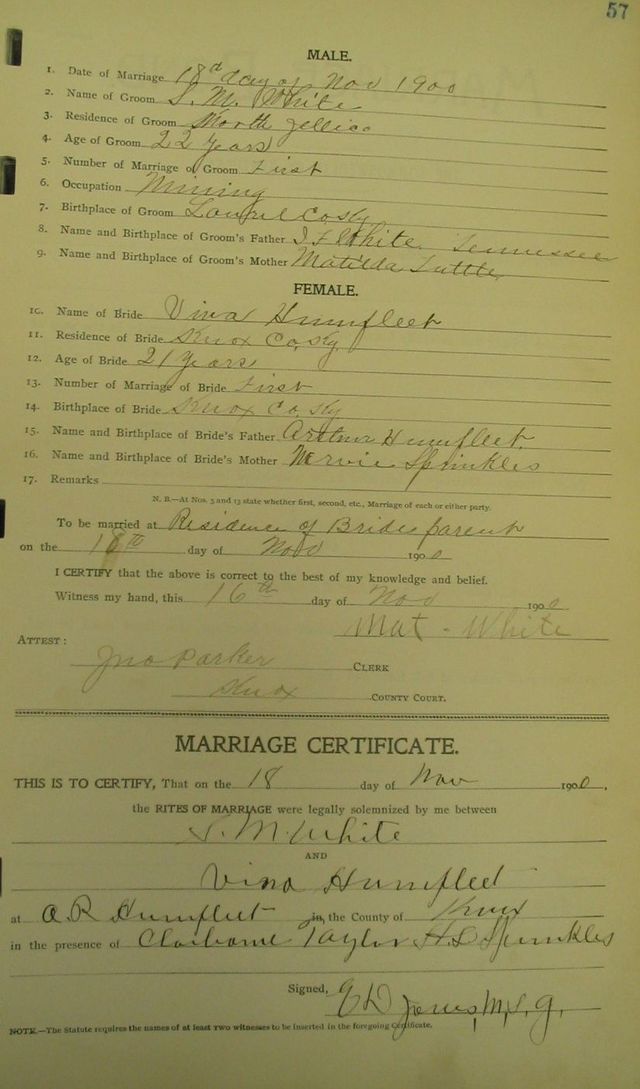 57
MALE.
1. Date of Marriage 18th day of Nov 1900
2. Name of Groom S. M. White
3. Residence of Groom North Jellico
4. Age of Groom 22 Years
5. Number of Marriage of Groom First
6. Occupation Mining
7. Birthplace of Groom Laurel Co Ky
8. Name and Birthplace of Groom's Father White. Tennessee
9. Name and Birthplace of Groom's Mother Matilda Tuttle
FEMALE.
10. Name of Bride Vina Humfleet
11. Residence of Bride Knox Co, Ky
12. Age of Bride 21 Years
13. Number of Marriage of Bride First
14. Birthplace of Bride Knox Co, Ky
15. Name and Birthplace of Bride's Father Humfleet
16. Name and Birthplace of Bride's Mother Sprinkles
17. Remarks
N. B.—At Nos. 5 and 13 state whether first, second, etc., Marriage of each or either party.
To be married at Residence of Brides parent
on the 18th day of Nov 1900
I CERTIFY that the above is correct to the best of my knowledge and belief.
Witness my hand, this 16th day of Nov 1900
Mat - White
ATTEST:
Jno Parker CLERK
Knox COUNTY COURT.
MARRIAGE CERTIFICATE.
THIS IS TO CERTIFY, That on the 18 day of Nov 1900.
the RITES OF MARRIAGE were legally solemnized by me between
S. M. White
AND
Vina Humfleet
at A. R Humfleet in, the County of Knox
in the presence of Claiborne Taylor H. D Sprinkles
Signed,
NOTE.—The Statute requires the names of at least two witnesses to be inserted in the foregoing Certificate.